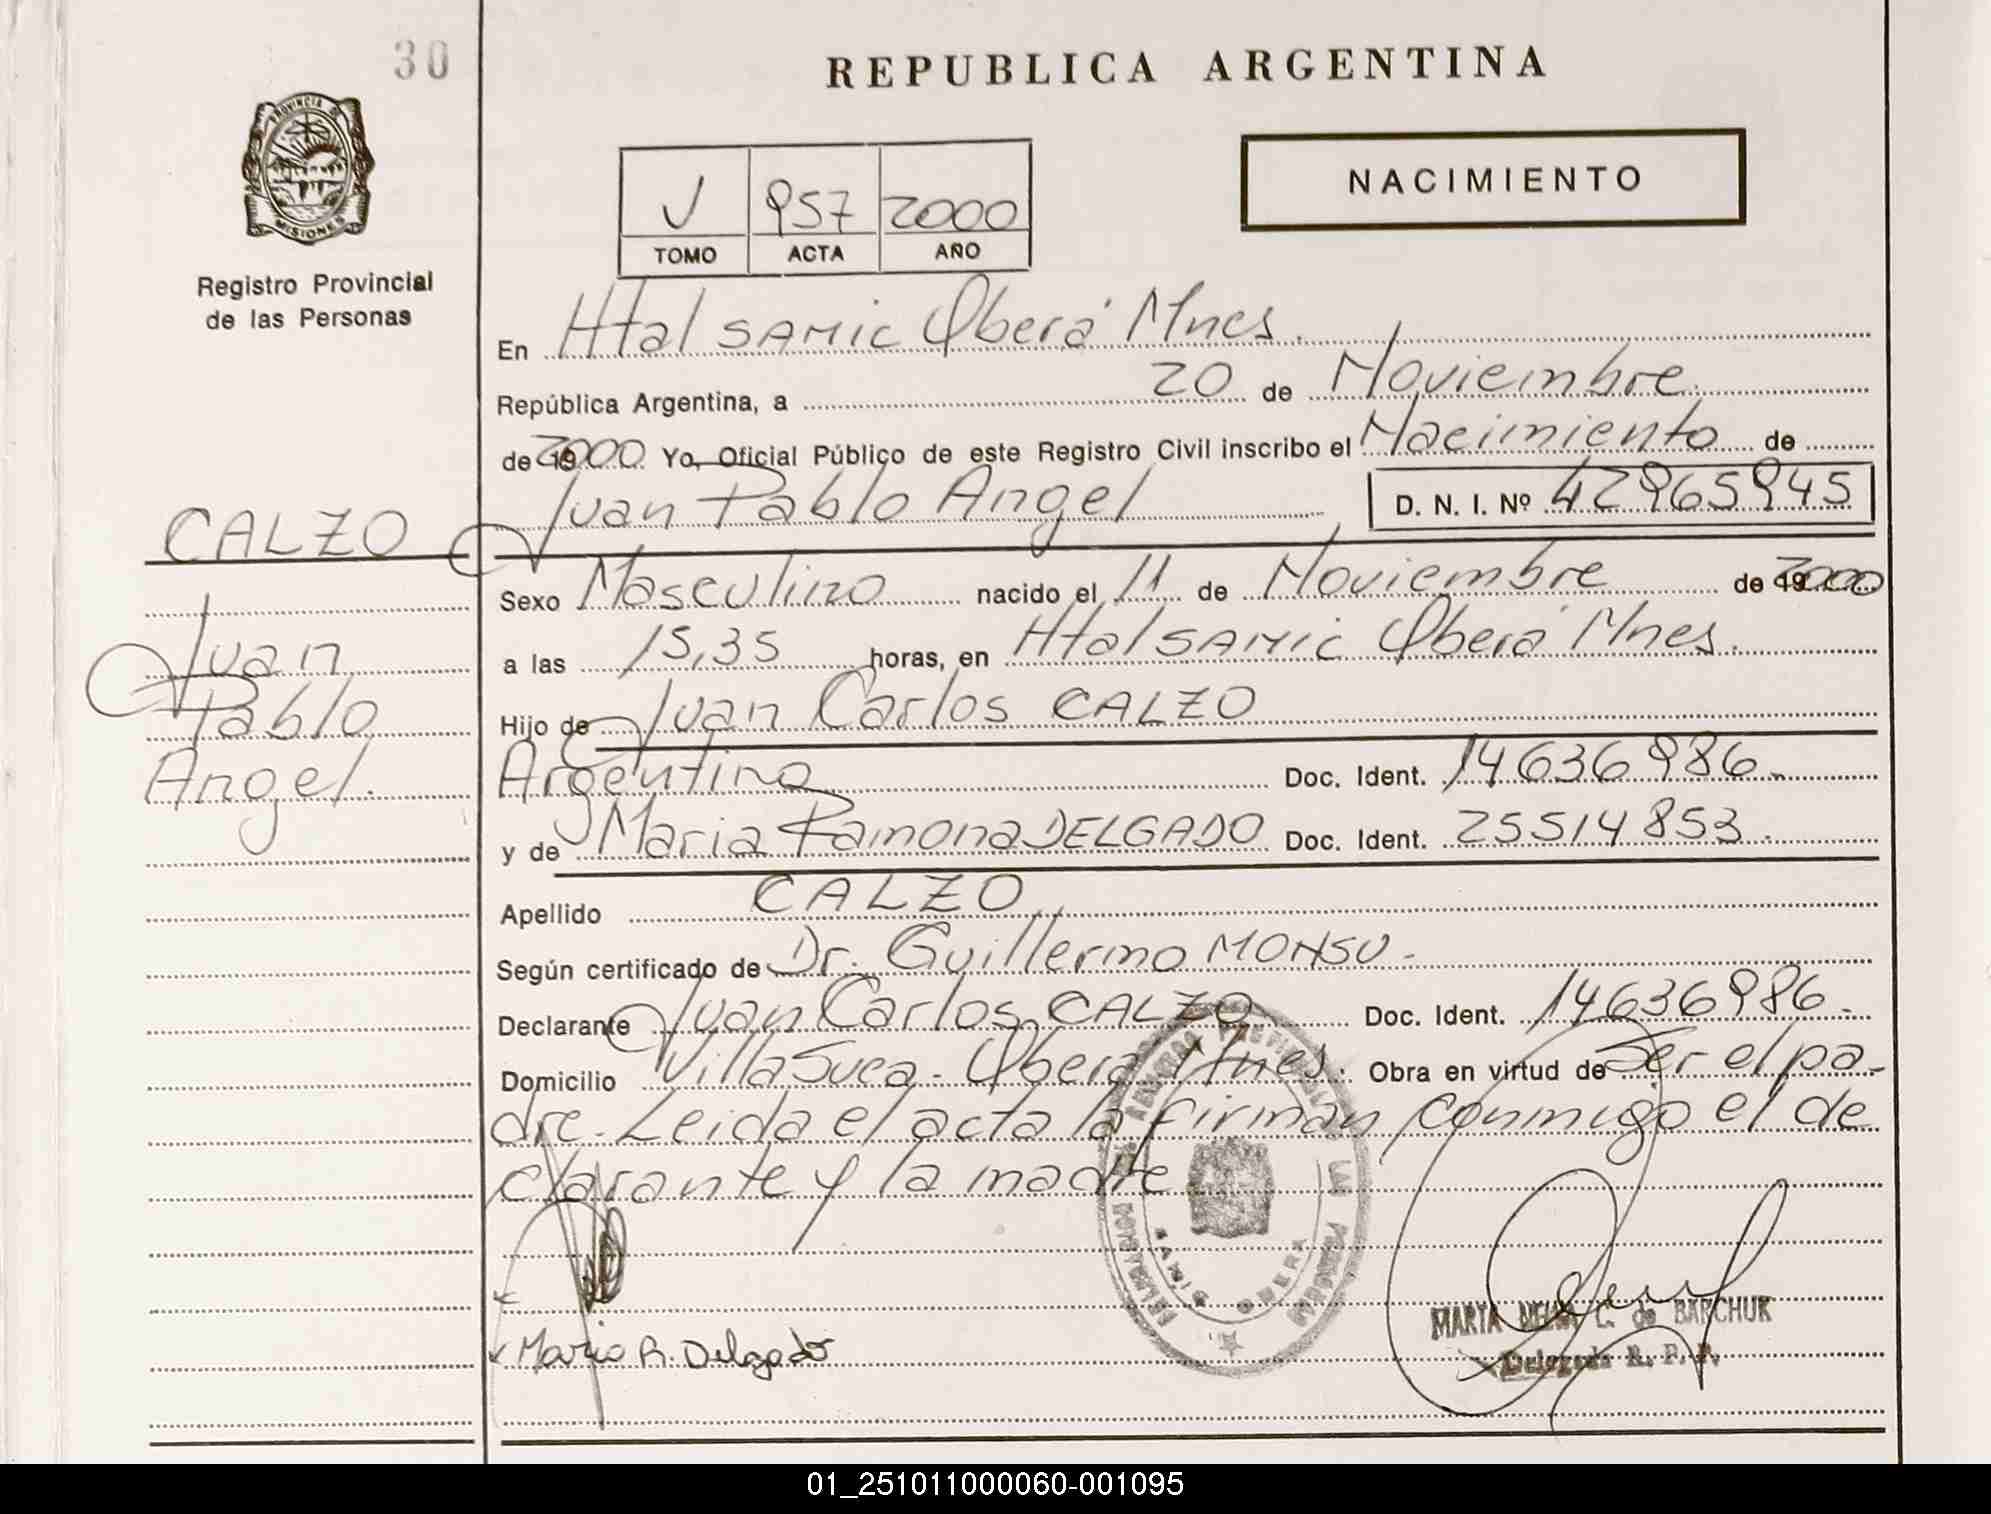 30
REPUBLICA ARGENTINA
PROVINCIA DE
MISIONES
Registro Provincial
de las Personas
NACIMIENTO
V 957 2000
TOMO ACTA AÑO
En Htal SAMIC Oberá Mnes.
República Argentina, a 20 de Noviembre
de 2000 Yo, Oficial Público de este Registro Civil inscribo el Nacimiento de
Juan Pablo Angel D. N. I. Nº 42965945
CALZO
Juan
Pablo
Angel.
Sexo Masculino nacido el 11 de Noviembre de 2000
a las 15,35 horas, en Htal SAMIC Oberá Mnes.
Hijo de Juan Carlos CALZO
Argentino Doc. Ident. 14636986.
y de Maria Ramona DELGADO Doc. Ident. 25514853.
Apellido CALZO
Según certificado de Dr. Guillermo MONSU.
Declarante Juan Carlos CALZO Doc. Ident. 14636986.
Domicilio Villa Svea - Oberá Mnes. Obra en virtud de Ser el pa-
dre. Leida el acta la firman conmigo el de
clarante y la madre
Maria R. Delgado
MARTA C. de BARCHUK
Delegada R. P. P.
01_251011000060-001095